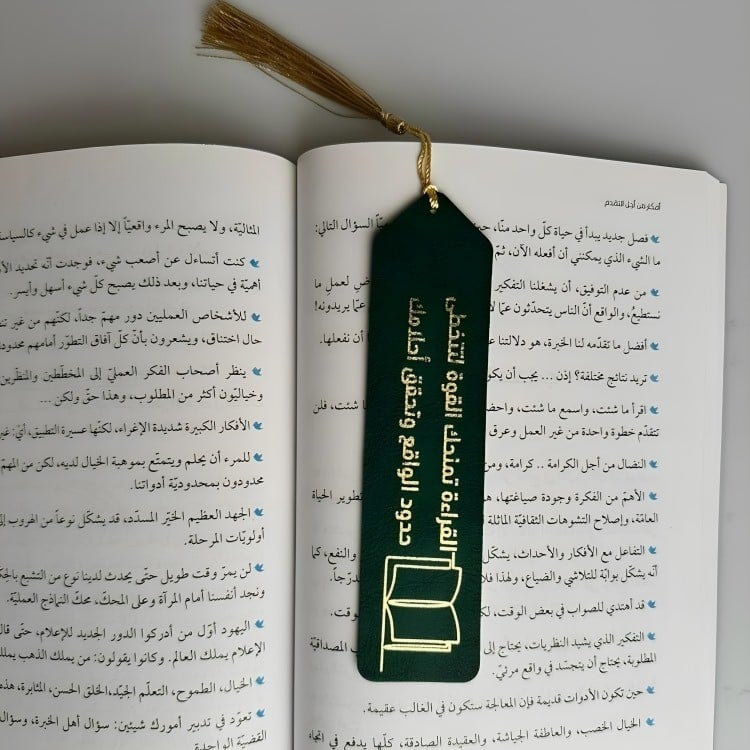 أفكار من أجل التقدم
فصل جديد يبدأ في حياة كلّ واحد منّا، السؤال التالي:
ما الشيء الذي يمكنني أن أفعله الآن،
من عدم التوفيق، أن يشغلنا التفكير لعمل ما
نستطيعُ، والواقع أنّ الناس يتحدّثون عمّا يريدونه!
أفضل ما تقدّمه لنا الخبرة، هو دلالتنا أن نفعلها.
تريد نتائج مختلفة؟ إذن ... يجب أن
اقرأ ما شئت، واسمع ما شئت، شئت، فلن
تتقدّم خطوة واحدة من غير العمل وعرق
النضال من أجل الكرامة .. كرامة،
الأهمّ من الفكرة وجودة صياغتها، تطوير الحياة
العامّة، وإصلاح التشوهات الثقافيّة الماثلة
التفاعل مع الأفكار والأحداث، يشكّل والنفع، كما
أنّه يشكّل بوابّة للتلاشي والضياع، ولهذا
قد أهتدي للصواب في بعض الوقت،
التفكير الذي يشيد النظريات، يحتاج إلى المصداقيّة
المطلوبة، يحتاج أن يتجسّد في واقع مرئيّ.
حين تكون الأدوات قديمة فإن المعالجة ستكون في الغالب عقيمة.
الخيال الخصب، والعاطفة الجياشة، والعقيدة الصادقة، كلّها يدفع في إتجاه
القراءة تمنحك القوة لتتخطى
حدود الواقع وتحقق أحلامك
المثاليّة، ولا يصبح المرء واقعيّاً إلا إذا عمل في شيء كالسياسة
كنت أتساءل عن أصعب شيء، فوجدت أنّه تحديد
أهميّة في حياتنا، وبعد ذلك يصبح كلّ شيء أسهل وأيسر.
للأشخاص العمليين دور مهمّ جداً، لكنّهم من غير
حال اختناق، ويشعرون بأنّ كلّ آفاق التطوّر أمامهم
ينظر أصحاب الفكر العمليّ إلى المخطّطين والمنظّرين
وخياليّون أكثر من المطلوب، وهذا حقّ ولكن ...
الأفكار الكبيرة شديدة الإغراء، لكنّها عسيرة التطبيق، أيّ: غير
للمرء أن يحلم ويتمتّع بموهبة الخيال لديه، لكن من المهمّ
محدودون بمحدوديّة أدواتنا.
الجهد العظيم الخيّر المسدّد، قد يشكّل نوعاً من الهروب إلى
أولويّات المرحلة.
لن يمرّ وقت طويل حتّى يحدث لدينا نوع من التشبع
ونجد أنفسنا أمام المرآة وعلى المحكّ، محكّ النماذج العمليّة.
اليهود أوّل من أدركوا الدور الجديد للإعلام، حتّى
الإعلام يملك العالم. وكانوا يقولون: من يملك الذهب
الخيال، الطموح، التعلّم الجيّد، الخلق الحسن، المثابرة،
تعوّد في تدبير أمورك شيئين: سؤال أهل الخبرة، وسؤال
القضيّة الواحدة